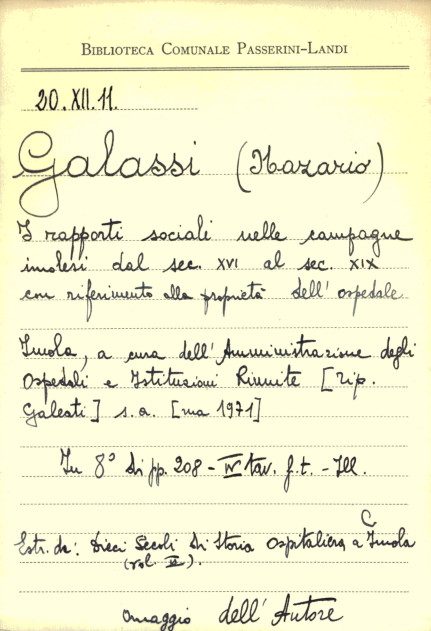 BIBLIOTECA COMUNALE PASSERINI-LANDI
20.XII.11.
Galassi (Nazario)
I rapporti sociali nelle campagne
imolesi dal sec. XVI al sec. XIX
con riferimento alla proprietà dell'ospedale
Imola, a cura dell'Amministrazione degli
Ospedali e Istituzioni Riunite [tip.
Galeati] s.a. [ma 1971]
In 8° di pp. 208 - IV tav. f.t. - Ill.
Estr. da: Dieci Secoli di Storia Ospitaliera a Imola
(vol. II).
omaggio dell'Autore